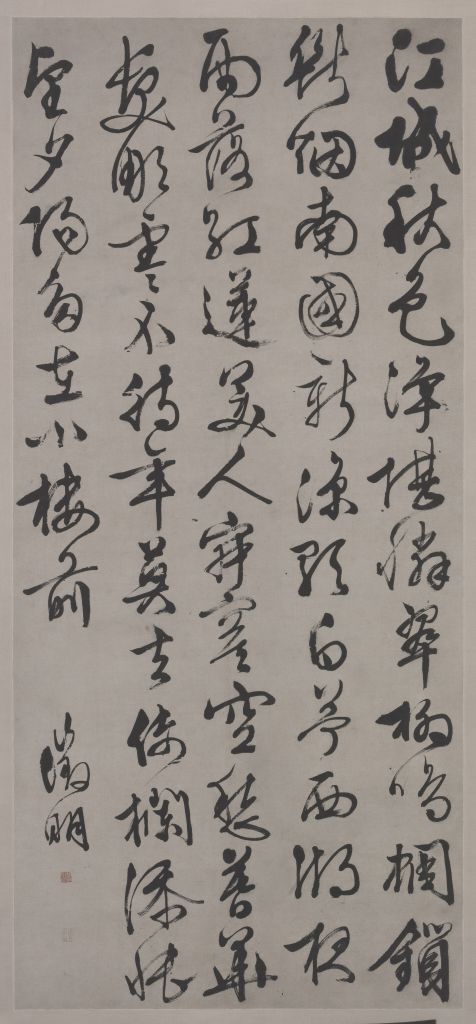 江城秋色淨堪憐翠柳鳴蜩鎖
斷烟南國新涼歌白苧西湖夜
雨落紅蓮美人寂寞空愁暮華
髮彫零不待年莫去倚欄添悵
望夕陽多在小樓前
徵明